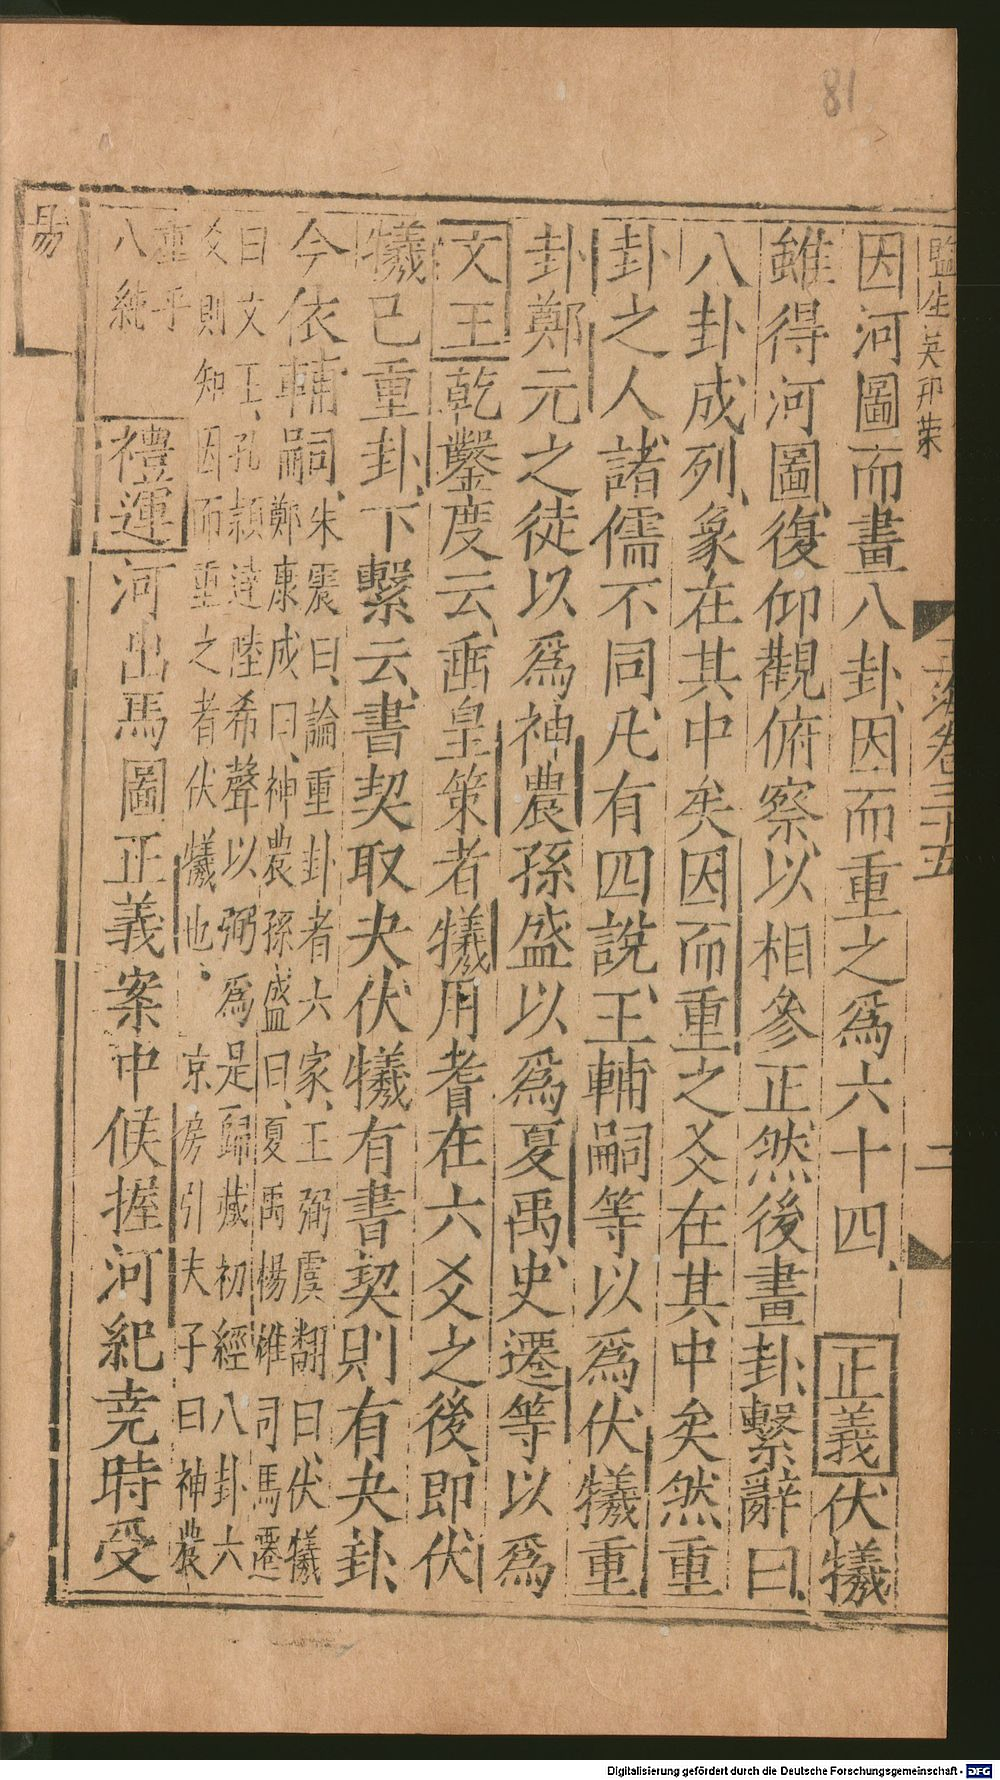 81
監生吳邦榮
玉海卷三十五 二
因河圖而畫八卦、因而重之爲六十四、正義伏犧
雖得河圖、復仰觀俯察以相參正、然後畫卦、繫辭曰、
八卦成列、象在其中矣因而重之爻在其中矣然重
卦之人諸儒不同凡有四說、王輔嗣等以爲伏犧重
卦鄭元之徒以爲神農孫盛以爲夏禹、史遷等以爲
文王乾鑿度云、垂皇策者犧用蓍在六爻之後、即伏
犧已重卦、下繫云、書契取夬伏犧有書契則有夬卦、
今依輔嗣、朱震曰、論重卦者六家、王弼虞翻曰、伏犧
鄭康成曰、神農孫盛曰、夏禹楊雄司馬遷
曰文王、孔穎達陸希聲以弼爲是歸藏初經八卦六
爻則知因而重之者伏犧也。京房引夫子曰神農
重乎
八純
禮運河出馬圖正義案中候握河紀堯時受
易
Digitalisierung gefördert durch die Deutsche Forschungsgemeinschaft - DFG